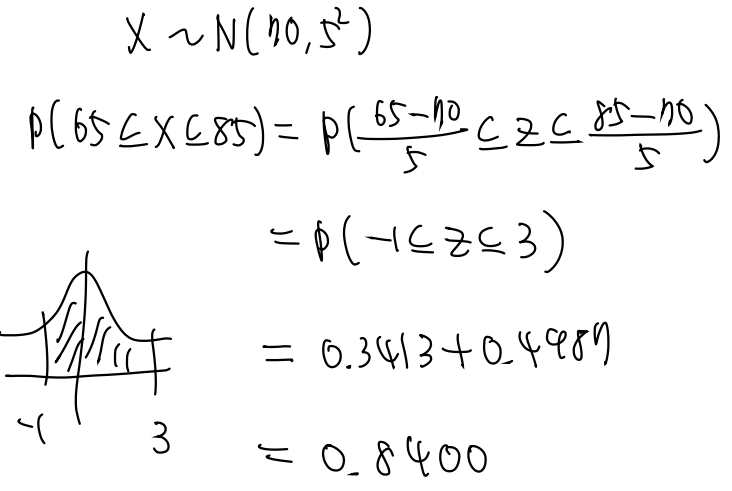 X ~ N(70, 5²)
P(65 ≤ X ≤ 85) = P((65-70)/5 ≤ Z ≤ (85-70)/5)
= P(-1 ≤ Z ≤ 3)
= 0.3413 + 0.4987
-1 3
= 0.8400